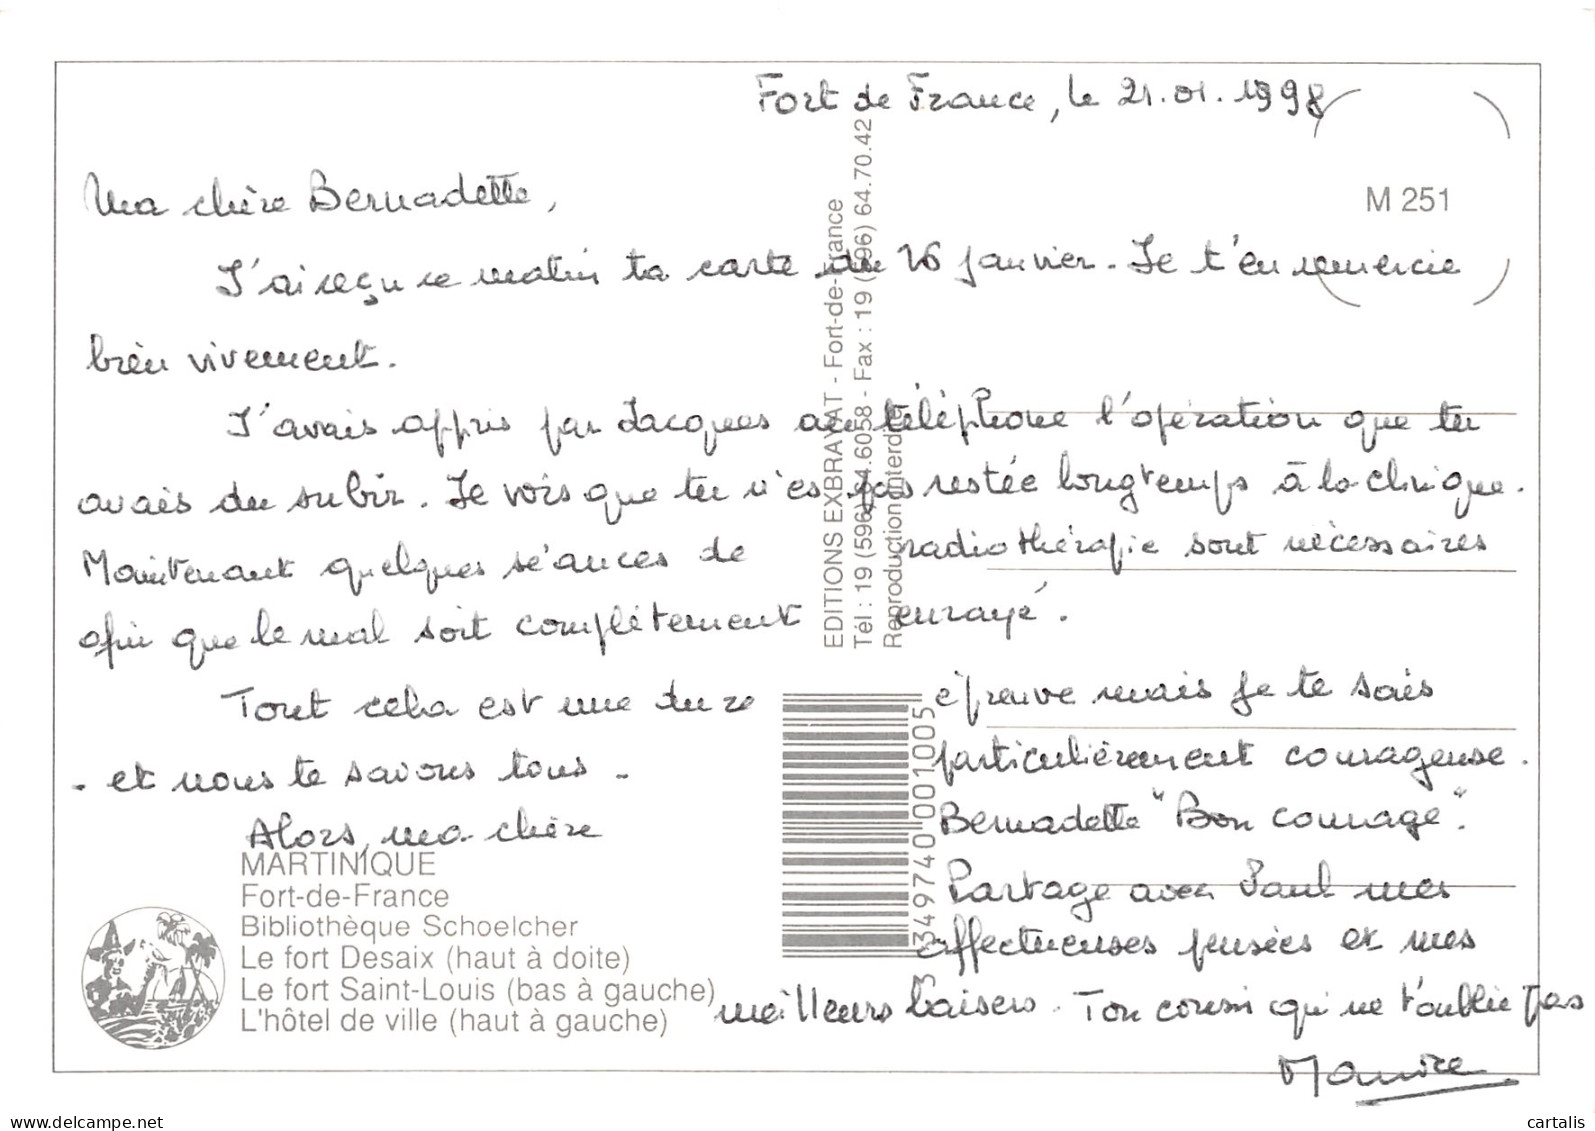 Fort de France, le 21.01.1998
M 251
Ma chère Bernadette,
J'ai reçu ce matin ta carte du 16 janvier. Je t'en remercie
bien vivement.
J'avais appris par Jacques au téléphone l'opération que tu
avais du subir. Je vois que tu n'es pas restée longtemps à la clinique.
Maintenant quelques séances de radiothérapie sont nécessaires
afin que le mal soit complètement enrayé.
Tout cela est une dure épreuve mais je te sais
- et nous te savons tous - particulièrement courageuse.
Alors, ma chère Bernadette "Bon courage".
Partage avec Paul mes
affectueuses pensées et mes
meilleurs baisers. Ton cousin qui ne t'oublie pas
Maurice
EDITIONS EXBRAYAT - Fort-de-France
Tél : 19 (596) 64.6058 - Fax : 19 (596) 64.70.42
Reproduction interdite
3 349740 001005
MARTINIQUE
Fort-de-France
Bibliothèque Schoelcher
Le fort Desaix (haut à doite)
Le fort Saint-Louis (bas à gauche)
L'hôtel de ville (haut à gauche)
myowncollection
cartalis